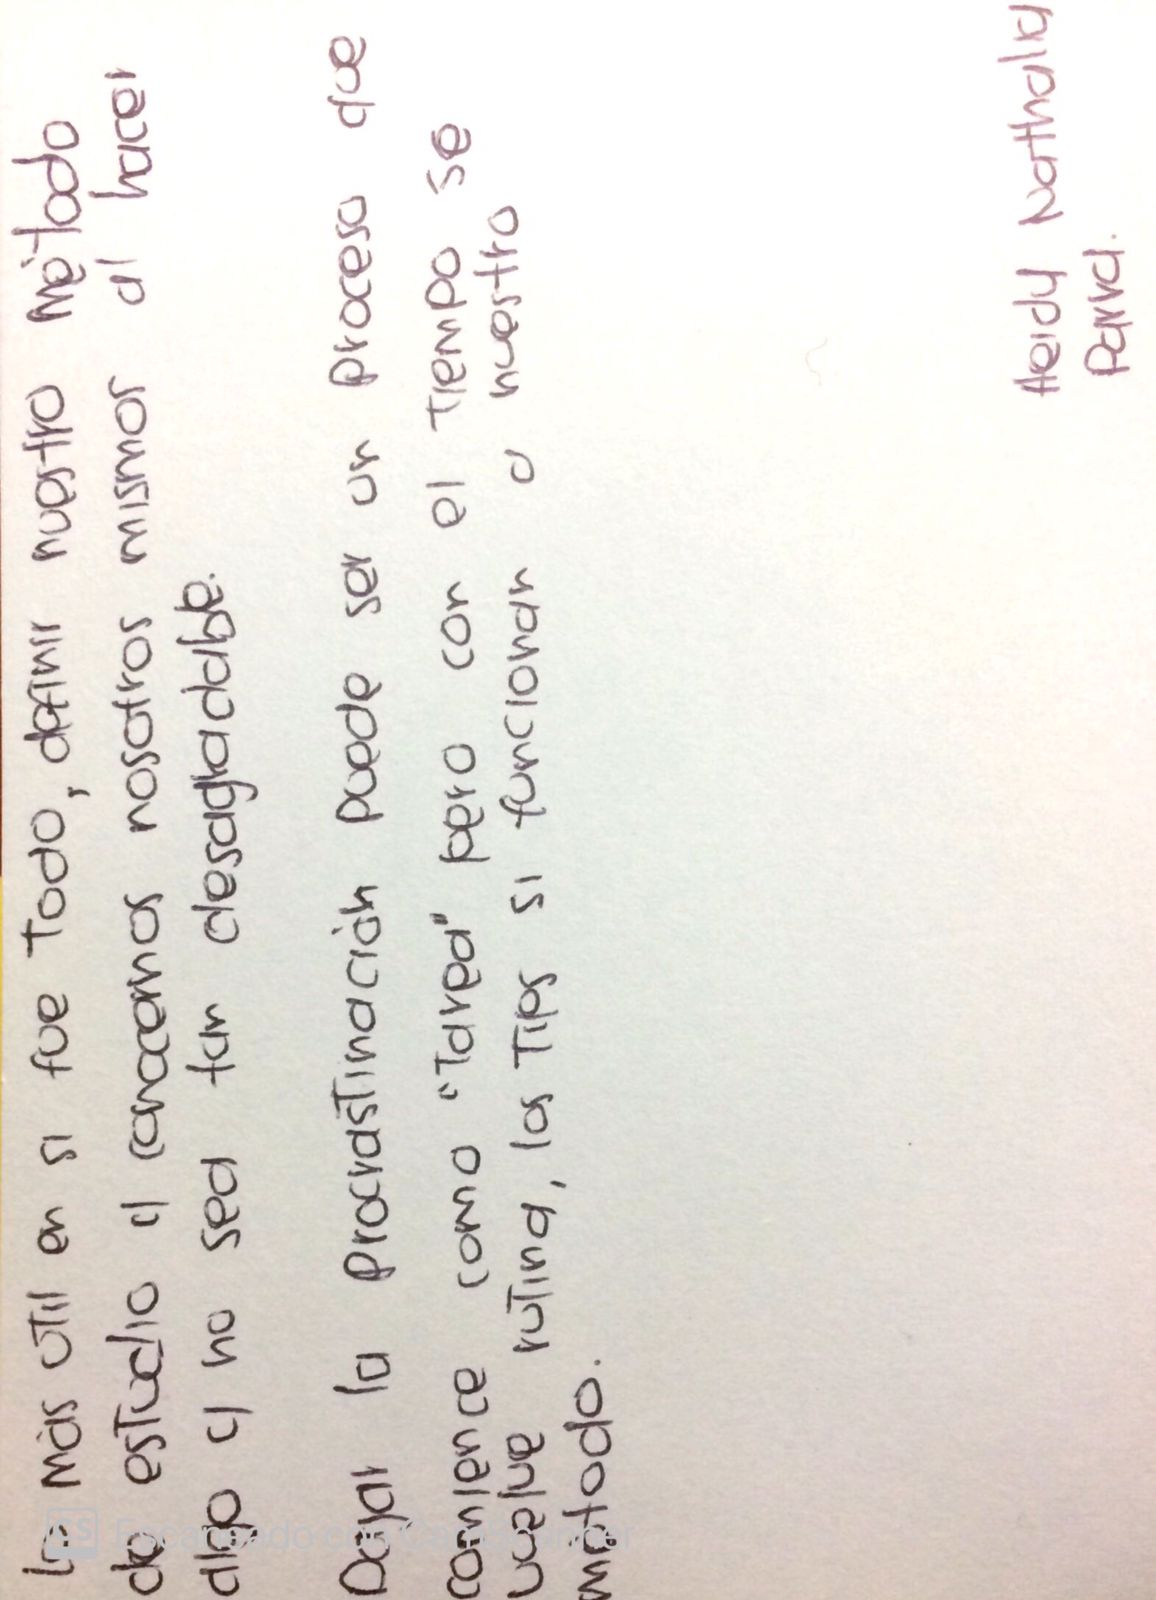 Lo màs util en si fue Todo, definir nuestro mètodo
de estudio y conocernos nosotros mismos al hacer
algo y no sea tan desagradable.
Dejar la procrastinaciòn puede ser un proceso que
comience como "Tarea" pero con el tiempo se
vuelve rutina, los Tips si funcionan a nuestro
mètodo.
Heidy Nathalia
Parra.